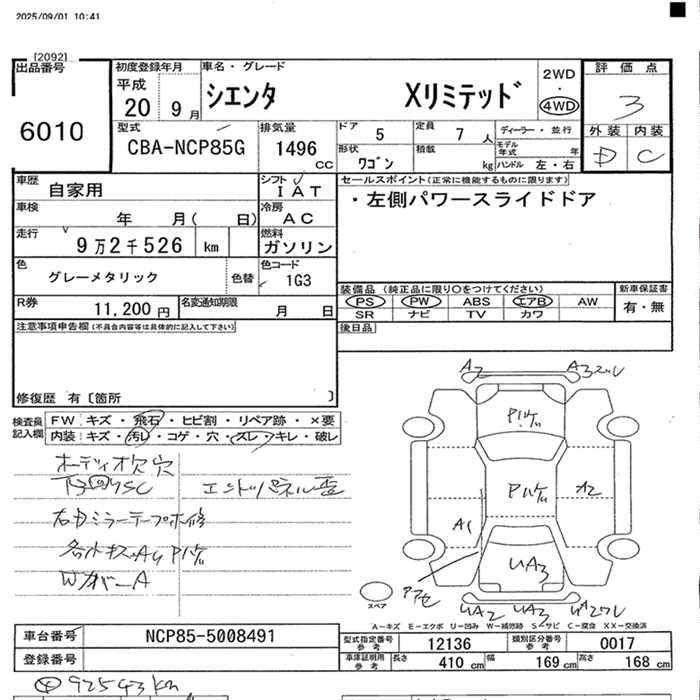 2025/09/01 10:41
[2092]
出品番号
6010
初度登録年月
平成
20 9月
車名・グレード
シエンタ Xリミテッド
2WD
・
4WD
評価点
3
外装 内装
D C
型式
CBA-NCP85G
排気量
1496 cc
ドア 5
定員 7 人
ディーラー・並行
形状 ワゴン
積載 kg
モデル年式 年
ハンドル 左・右
車歴 自家用
シフト IAT
車検 年 月( 日)
冷房 AC
走行 9万2千526 km
燃料 ガソリン
色 グレーメタリック
色替
色コード 1G3
R券 11,200円
名変通知期限 月 日
セールスポイント(正常に機能するものに限ります)
・左側パワースライドドア
装備品(純正品に限り○をつけてください)
PS PW ABS エアB AW
SR ナビ TV カワ
新車保証書
有・無
後日品
注意事項申告欄(不具合内容等は具体的に記入して下さい)
修復歴 有〔箇所 〕
検査員記入欄
FW:キズ・飛石・ヒビ割・リペア跡・×要
内装:キズ・汚レ・コゲ・穴・スレ・キレ・破レ
オーディオ欠穴
エンドパネル歪
右ミラーテープ補修
WカバーA
A2
A3
Pハゲ
Pハゲ
A2
A1
UA3
UA2
UA3
スペア
A-キズ E-エクボ U-凹み W-補修跡 S-サビ C-腐食 XX-交換済
車台番号 NCP85-5008491
登録番号
型式指定番号参考 12136
類別区分番号参考 0017
車庫証明用参考 長さ 410 cm 幅 169 cm 高さ 168 cm
92543km